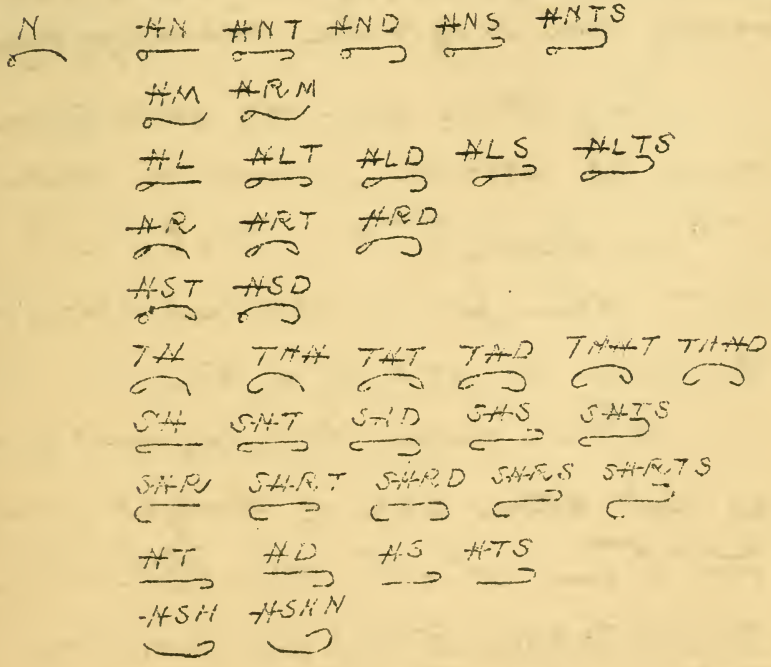 N N̶N N̶NT N̶ND N̶NS N̶NTS
N̶M N̶RM
N̶L N̶LT N̶LD N̶LS N̶LTS
N̶R N̶RT N̶RD
N̶ST N̶SD
TN̶ TN̶T TN̶D
SN̶ SN̶T SN̶D SN̶S SN̶TS
SN̶R SN̶RT SN̶RD SN̶RS SN̶RTS
N̶T N̶D N̶S N̶TS
N̶SH N̶SHN